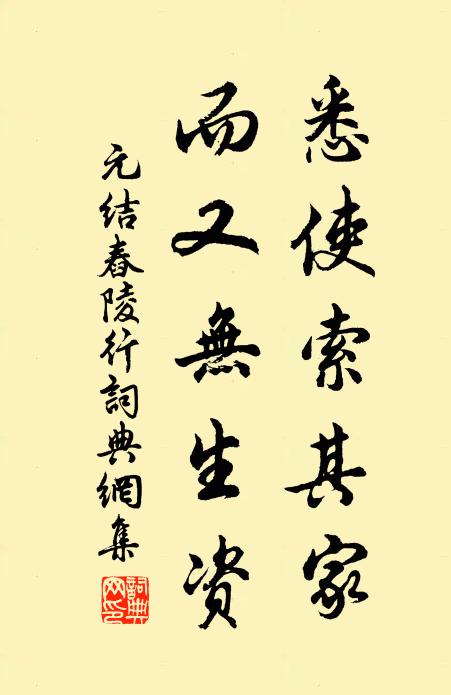 悉使索其家
而又無生资
元结舂陵行詞典網集
詞典
网印